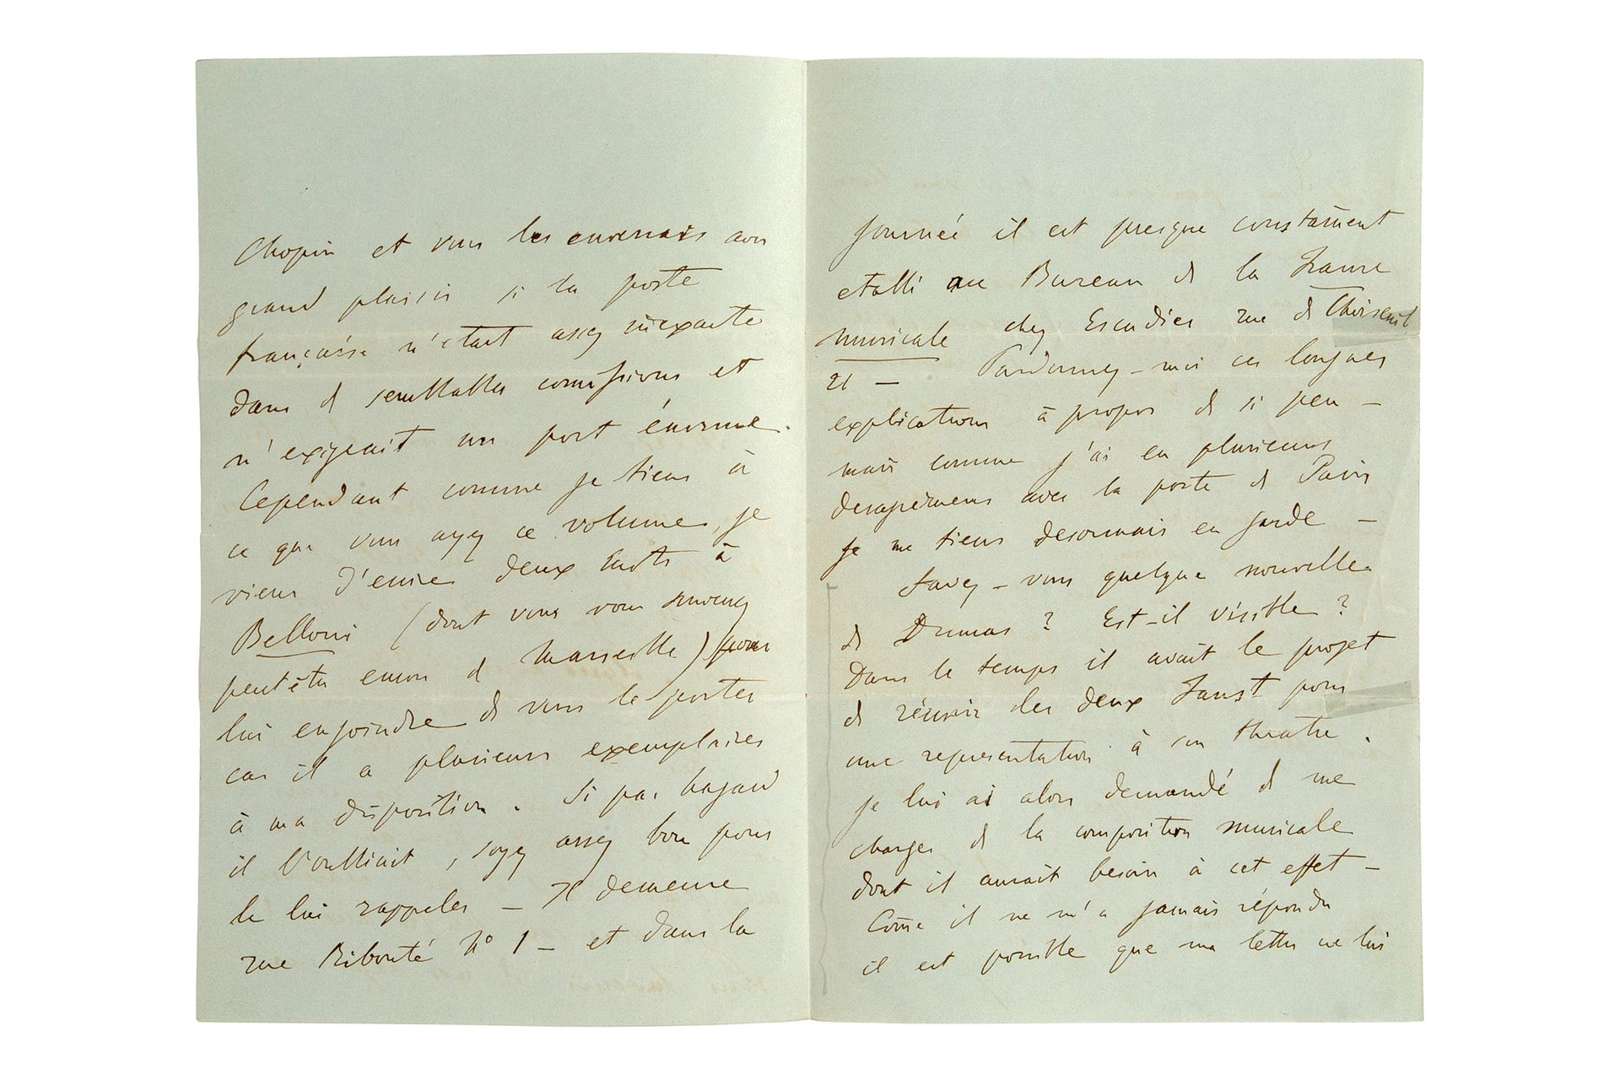 Chopin et vous les enverrais avec
grand plaisir si la poste
française n'était assez inexacte
dans de semblables comissions et
n'exigeait un port énorme.
Cependant comme je tiens à
ce que vous ayez ce volume, je
viens d'ecrire deux mots à
Belloni (dont vous vous souvenez
peutêtre encor de Marseille) pour
lui enjoindre de vous le porter
car il a plusieurs exemplaires
à ma disposition. Si par hazard
il l'oubliait, soyez assez bon pour
le lui rappeler – Il demeure
rue Ribouté No 1 – et dans la
journée il est presque constament
etabli au Bureau de la France
musicale chez Escudier rue de Choiseul
21 – Pardonnez-moi ces longues
explications à propos de si peu –
mais comme j'ai eu plusieurs
desagrémens avec la poste de Paris
je me tiens desormais en garde –
Savez-vous quelque nouvelle
de Dumas? Est-il visible?
Dans le temps il avait le projet
de réunir les deux Faust pour
une representation à son theatre.
je lui ai alors demandé de me
charger de la composition musicale
dont il aurait besoin à cet effet –
Come il ne m'a jamais répondu
il est possible que ma lettre ne lui